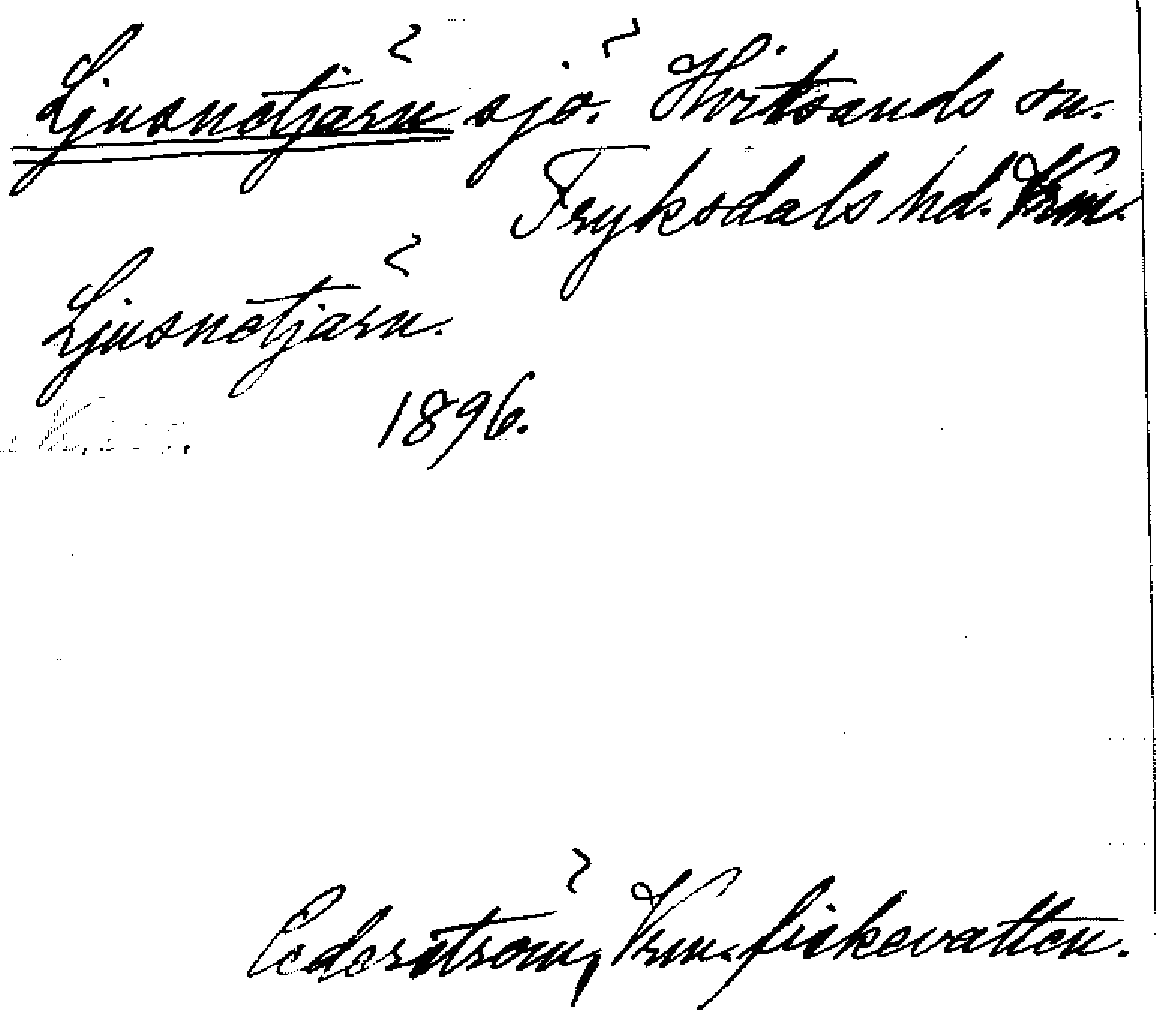 Ljusnetjärn sjö. Hvitsands sn.
Fryksdals hd. Vrm.
Ljusnetjärn.
1896.
Cederström, Vrm. fiskevatten.